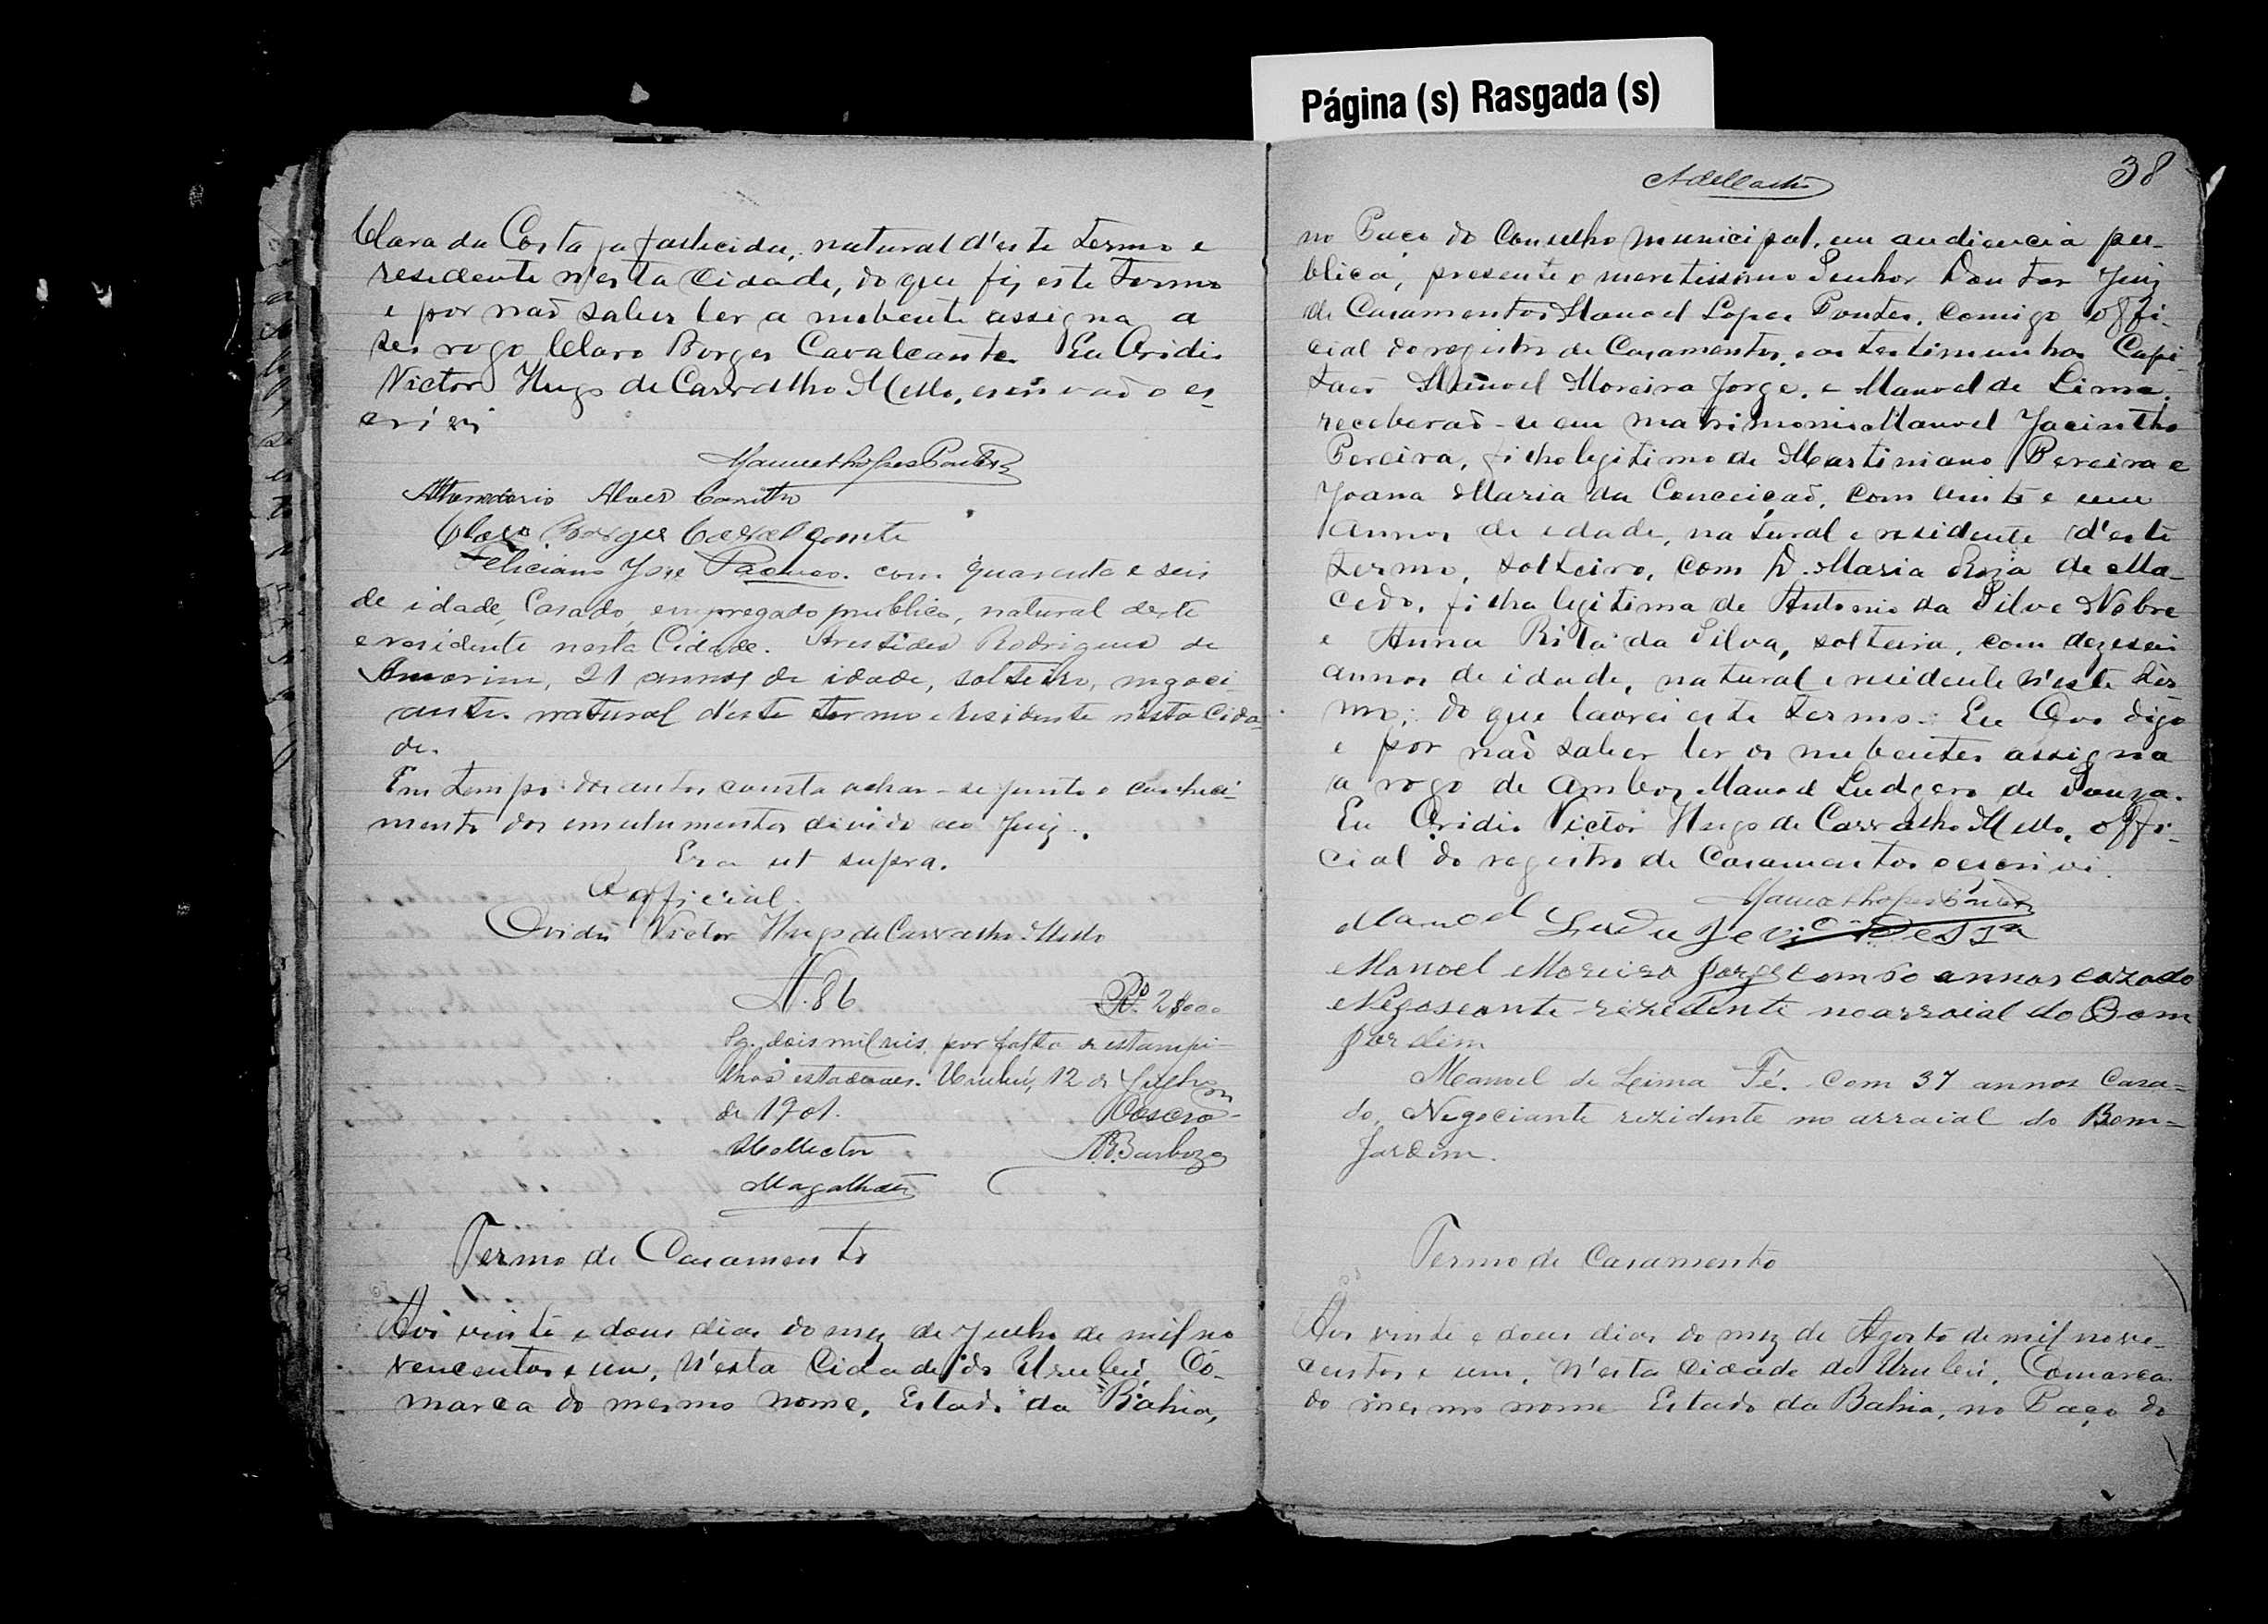 Página (s) Rasgada (s)
Clara da Costa ja fallecida, natural d'este termo e
residente n'esta Cidade, do que fiz este termo
e por naõ saber ler a nubente assigna a
seu rogo Claro Borges Cavalcante. Eu Ovidio
Victor Hugo de Carvalho Mello, escrivaõ o es-
crivi
Manoel Lopes Pontes
Alves
Claro Borges Cavalcante
Feliciano José Pacheco. com quarenta e seis
de idade, Casado, empregado publico, natural deste
e residente nesta Cidade. Aristides Rodrigues de
Amorim, 21 annos de idade, solteiro, negoci-
ante. natural d'este termo e residente nesta Cida-
de.
Em tempo: dos autos consta achar-se junto o conheci-
mento dos emolumentos divido ao Juiz.
Era ut supra.
O official.
Ovidio Victor Hugo de Carvalho Mello
N. 86 Rs. 2$000
Pg. dois mil reis, por falta de estampi-
lhas estadoaes. Urubú, 12 de Julho
de 1901.
O Collector
Magalhães
B. Barboza
Termo de Casamento
Aos vinte e dous dias do mez de Julho de mil no
vencentos e um, n'esta Cidade do Urubú, Co-
marca do mesmo nome, Estado da Bahia,
38
no Paço do Conselho municipal, em audiencia pu-
blica, presente o meretissimo Senhor Doutor Juiz
de Casamentos Manoel Lopes Pontes, comigo offi-
cial do registro de Casamentos, e as testimunhas Capi-
taõ Manoel Moreira Jorge, e Manoel de Lima,
receberaõ-se em matrimonio Manoel Jacintho
Pereira, filho legitimo de Martiniano Pereira e
Joana Maria da Conceiçaõ, com vinte e um
annos de edade, natural e residente d'este
termo, solteiro, com D. Maria Roza de Ma-
cedo, filha legitima de Antonio da Silva Nobre
e Anna Rita da Silva, solteira, com dezeseis
annos de idade, natural e residente n'este ter-
mo; do que lavrei este termo. Eu Ovo digo
e por naõ saber ler os nubentes assigna
a rogo de ambos Manoel Ludgero de Souza.
Eu Ovidio Victor Hugo de Carvalho Mello, offi-
cial do registro de Casamentos o escrivi.
Manoel Lopes Pontes
Manoel
Manoel Moreira Jorge com 50 annos cazado
Negoseante rezedente no arraial do Bom
Jardim
Manoel de Lima Fé. Com 37 annos Casa-
do, Negociante rezidente no arraial do Bom-
Jardim.
Termo de Casamento
Aos vinte e dous dias do mez de Agosto de mil nove-
centos e um, n'esta Cidade do Urubú, Comarca
do mesmo nome Estado da Bahia, no Paço do